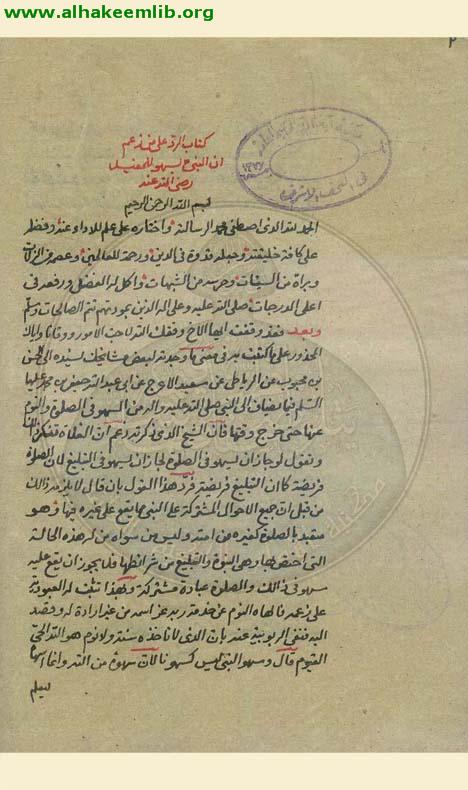 www.alhakeemlib.org
٢
كتاب الرد على من زعم
ان النبي ع ليسهو للمفيد
رضى الله عنه
بسم الله الرحمن الرحيم
الحمد لله الذى اصطفى محمد الرسالته واختاره على علم للاداء عنه وفضله
على كافة خليقته وجعله قدوة فى الدين ورحمة للعالمين وعصمه من الزلات
وبراه من السيئات وحرسه من الشبهات واكمل له الفضل ورفعه فى
اعلى الدرجات صلى الله عليه وعلى اله الذين بمودتهم تتم الصالحات وسلم
وبعد فقد وقفت ايها الاخ وفقك الله لما حث الامور ووقانا واياك
المحذور على ما كتبت به فى معنى ما وجدته لبعض مشايخك بسنده الى الحسن
بن محبوب عن الرباطى عن سعيد الاعرج عن ابى عبد الله جعفر بن محمد عليهما
السلم فيما يضاف الى النبى صلى الله عليه واله من السهو فى الصلوة والنوم
عنها حتى خرج وقتها فان الشيخ الذى ذكرته زعم ان الغلاة تنكر ذلك
وتقول لو جاز ان يسهو فى الصلوة لجاز ان يسهو فى التبليغ لان الصلوة
فريضة كما ان التبليغ فريضة فرد هذا القول بان قال لا يلزم ذلك
من قبل ان جميع الاحوال المشتركة على النبى ما يقع على غيره فيها وهو
متعبد بالصلوة كغيره من امته وليس من سواه من له هذه الحالة
التى اختص بها وهى النبوة والتبليغ من شرائطها فلا يجوز ان يقع عليه
سهو فى ذلك والصلوة عبادة مشتركة وبهذا تثبت له العبودية
على زعمه وبالهاه النوم عن خدمة ربه عز اسمه من غير ارادة له وقصد
اليه فنفى الربوبية عنه بان الذى لا تاخذه سنة ولا نوم هو الله الحى
القيوم قال وسهو النبى ليس كسهونا لان سهوه من الله وانما اسهاه
ليعلم